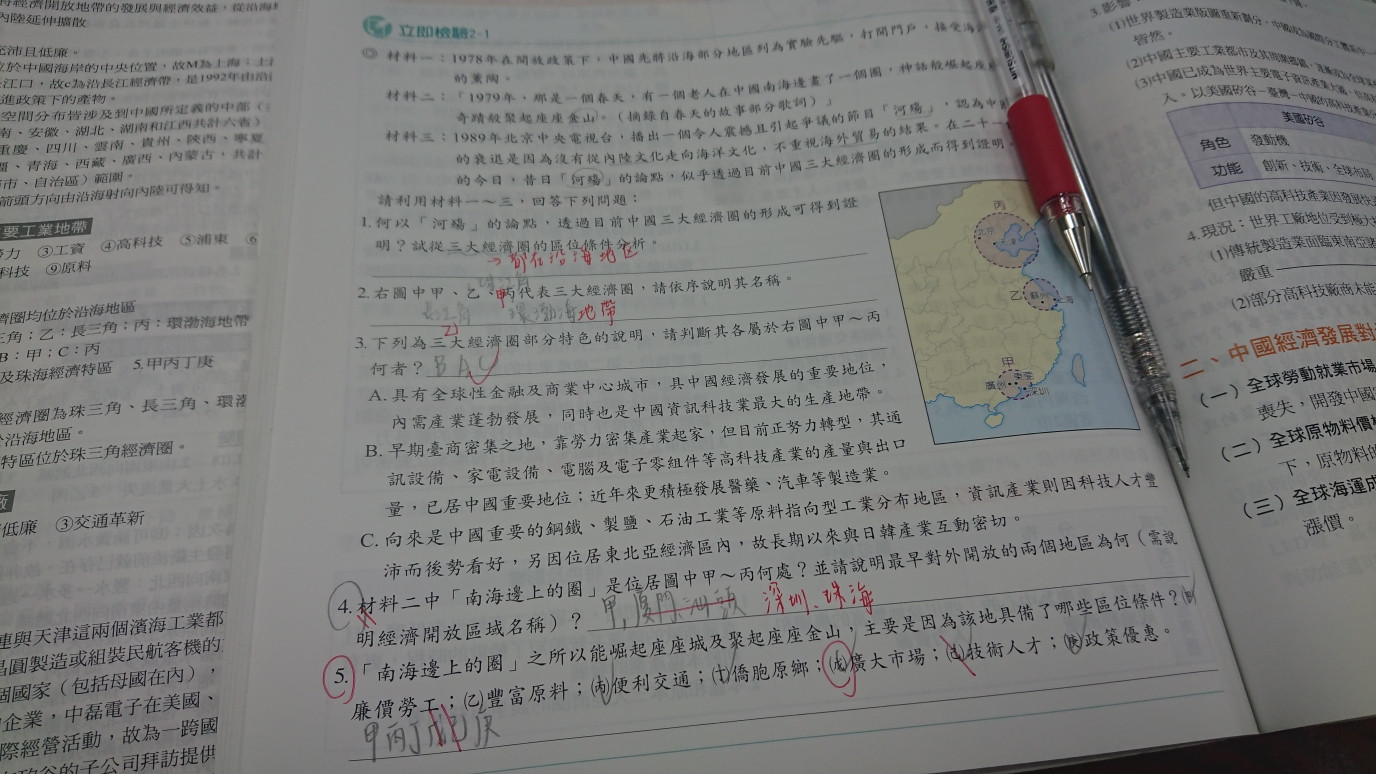 內陸延伸擴散
充沛且低廉。
位於中國海岸的中央位置，故M為上海；土
長江口，故c為沿長江經濟帶，是1992年由沿
進政策下的產物。
空間分布皆涉及到中國所定義的中部（
南、安徽、湖北、湖南和江西共計六省）
重慶、四川、雲南、貴州、陝西、寧夏
、青海、西藏、廣西、內蒙古，共計
市、自治區）範圍。
箭頭方向由沿海射向內陸可得知。
要工業地帶
勞力 ③工資 ④高科技 ⑤浦東 ⑥
科技 ⑨原料
濟圈均位於沿海地區
三角；乙：長三角；丙：環渤海地帶
B：甲；C：丙
及珠海經濟特區 5.甲丙丁庚
經濟圈為珠三角、長三角、環渤
於沿海地區。
特區位於珠三角經濟圈。
低廉 ③交通革新
連與天津這兩個濱海工業都
晶圓製造或組裝民航客機的
個國家（包括母國在內），
企業，中磊電子在美國、
際經營活動，故為一跨國
矽谷的子公司拜訪提供
立即檢驗2-1
◎ 材料一：1978年在開放政策下，中國先將沿海部分地區列為實驗先驅，打開門戶，接受海
的薰陶。
材料二：「1979年，那是一個春天，有一個老人在中國南海邊畫了一個圈，神話般崛起座
奇蹟般聚起座座金山」。（摘錄自春天的故事部分歌詞）」
材料三：1989年北京中央電視台，播出一個令人震撼且引起爭議的節目「河殤」，認為中
的衰退是因為沒有從內陸文化走向海洋文化，不重視海外貿易的結果。在二十一
的今日，昔日「河殤」的論點，似乎透過目前中國三大經濟圈的形成而得到證明。
請利用材料一～三，回答下列問題：
1.何以「河殤」的論點，透過目前中國三大經濟圈的形成可得到證
明？試從三大經濟圈的區位條件分析。
都在沿海地區
2.右圖中甲、乙、丙代表三大經濟圈，請依序說明其名稱。
甲
乙
環渤海地帶
3.下列為三大經濟圈部分特色的說明，請判斷其各屬於右圖中甲～丙
何者？BAC
A.具有全球性金融及商業中心城市，具中國經濟發展的重要地位，
內需產業蓬勃發展，同時也是中國資訊科技業最大的生產地帶。
B.早期臺商密集之地，靠勞力密集產業起家，但目前正努力轉型，其通
訊設備、家電設備、電腦及電子零組件等高科技產業的產量與出口
量，已居中國重要地位；近年來更積極發展醫藥、汽車等製造業。
C.向來是中國重要的鋼鐵、製鹽、石油工業等原料指向型工業分布地區，資訊產業則因科技人才豐
沛而後勢看好，另因位居東北亞經濟區內，故長期以來與日韓產業互動密切。
4.材料二中「南海邊上的圈」是位居圖中甲～丙何處？並請說明最早對外開放的兩個地區為何（需說
明經濟開放區域名稱）？甲，廈門 汕頭 深圳、珠海
5.「南海邊上的圈」之所以能崛起座座城及聚起座座金山，主要是因為該地具備了哪些區位條件？㈙
廉價勞工；㈚豐富原料；㈛便利交通；㈜僑胞原鄉；㈝廣大市場；㈞技術人才；㈟政策優惠。
甲丙丁戊己庚
丙
北京
天津
乙
蘇州
上海
甲
廣州
東莞
深圳
3.影響
(1)世界製造業版圖重新劃分，中國成為
皆然。
(2)中國主要工業都市及其
(3)中國已成為世界主要電子資訊產業
入。以美國矽谷—臺灣—中國的高科技產業
美國矽谷
角色 發動機
功能 創新、技術、全球布局
但中國的高科技產業因發展快
4.現況：世界工廠地位受到極大
(1)傳統製造業面臨東南亞
嚴重
(2)部分高科技廠商未能
二、中國經濟發展對
（一）全球勞動就業市場
喪失，開發中國
（二）全球原物料價格
下，原物料的
（三）全球海運成
漲價。